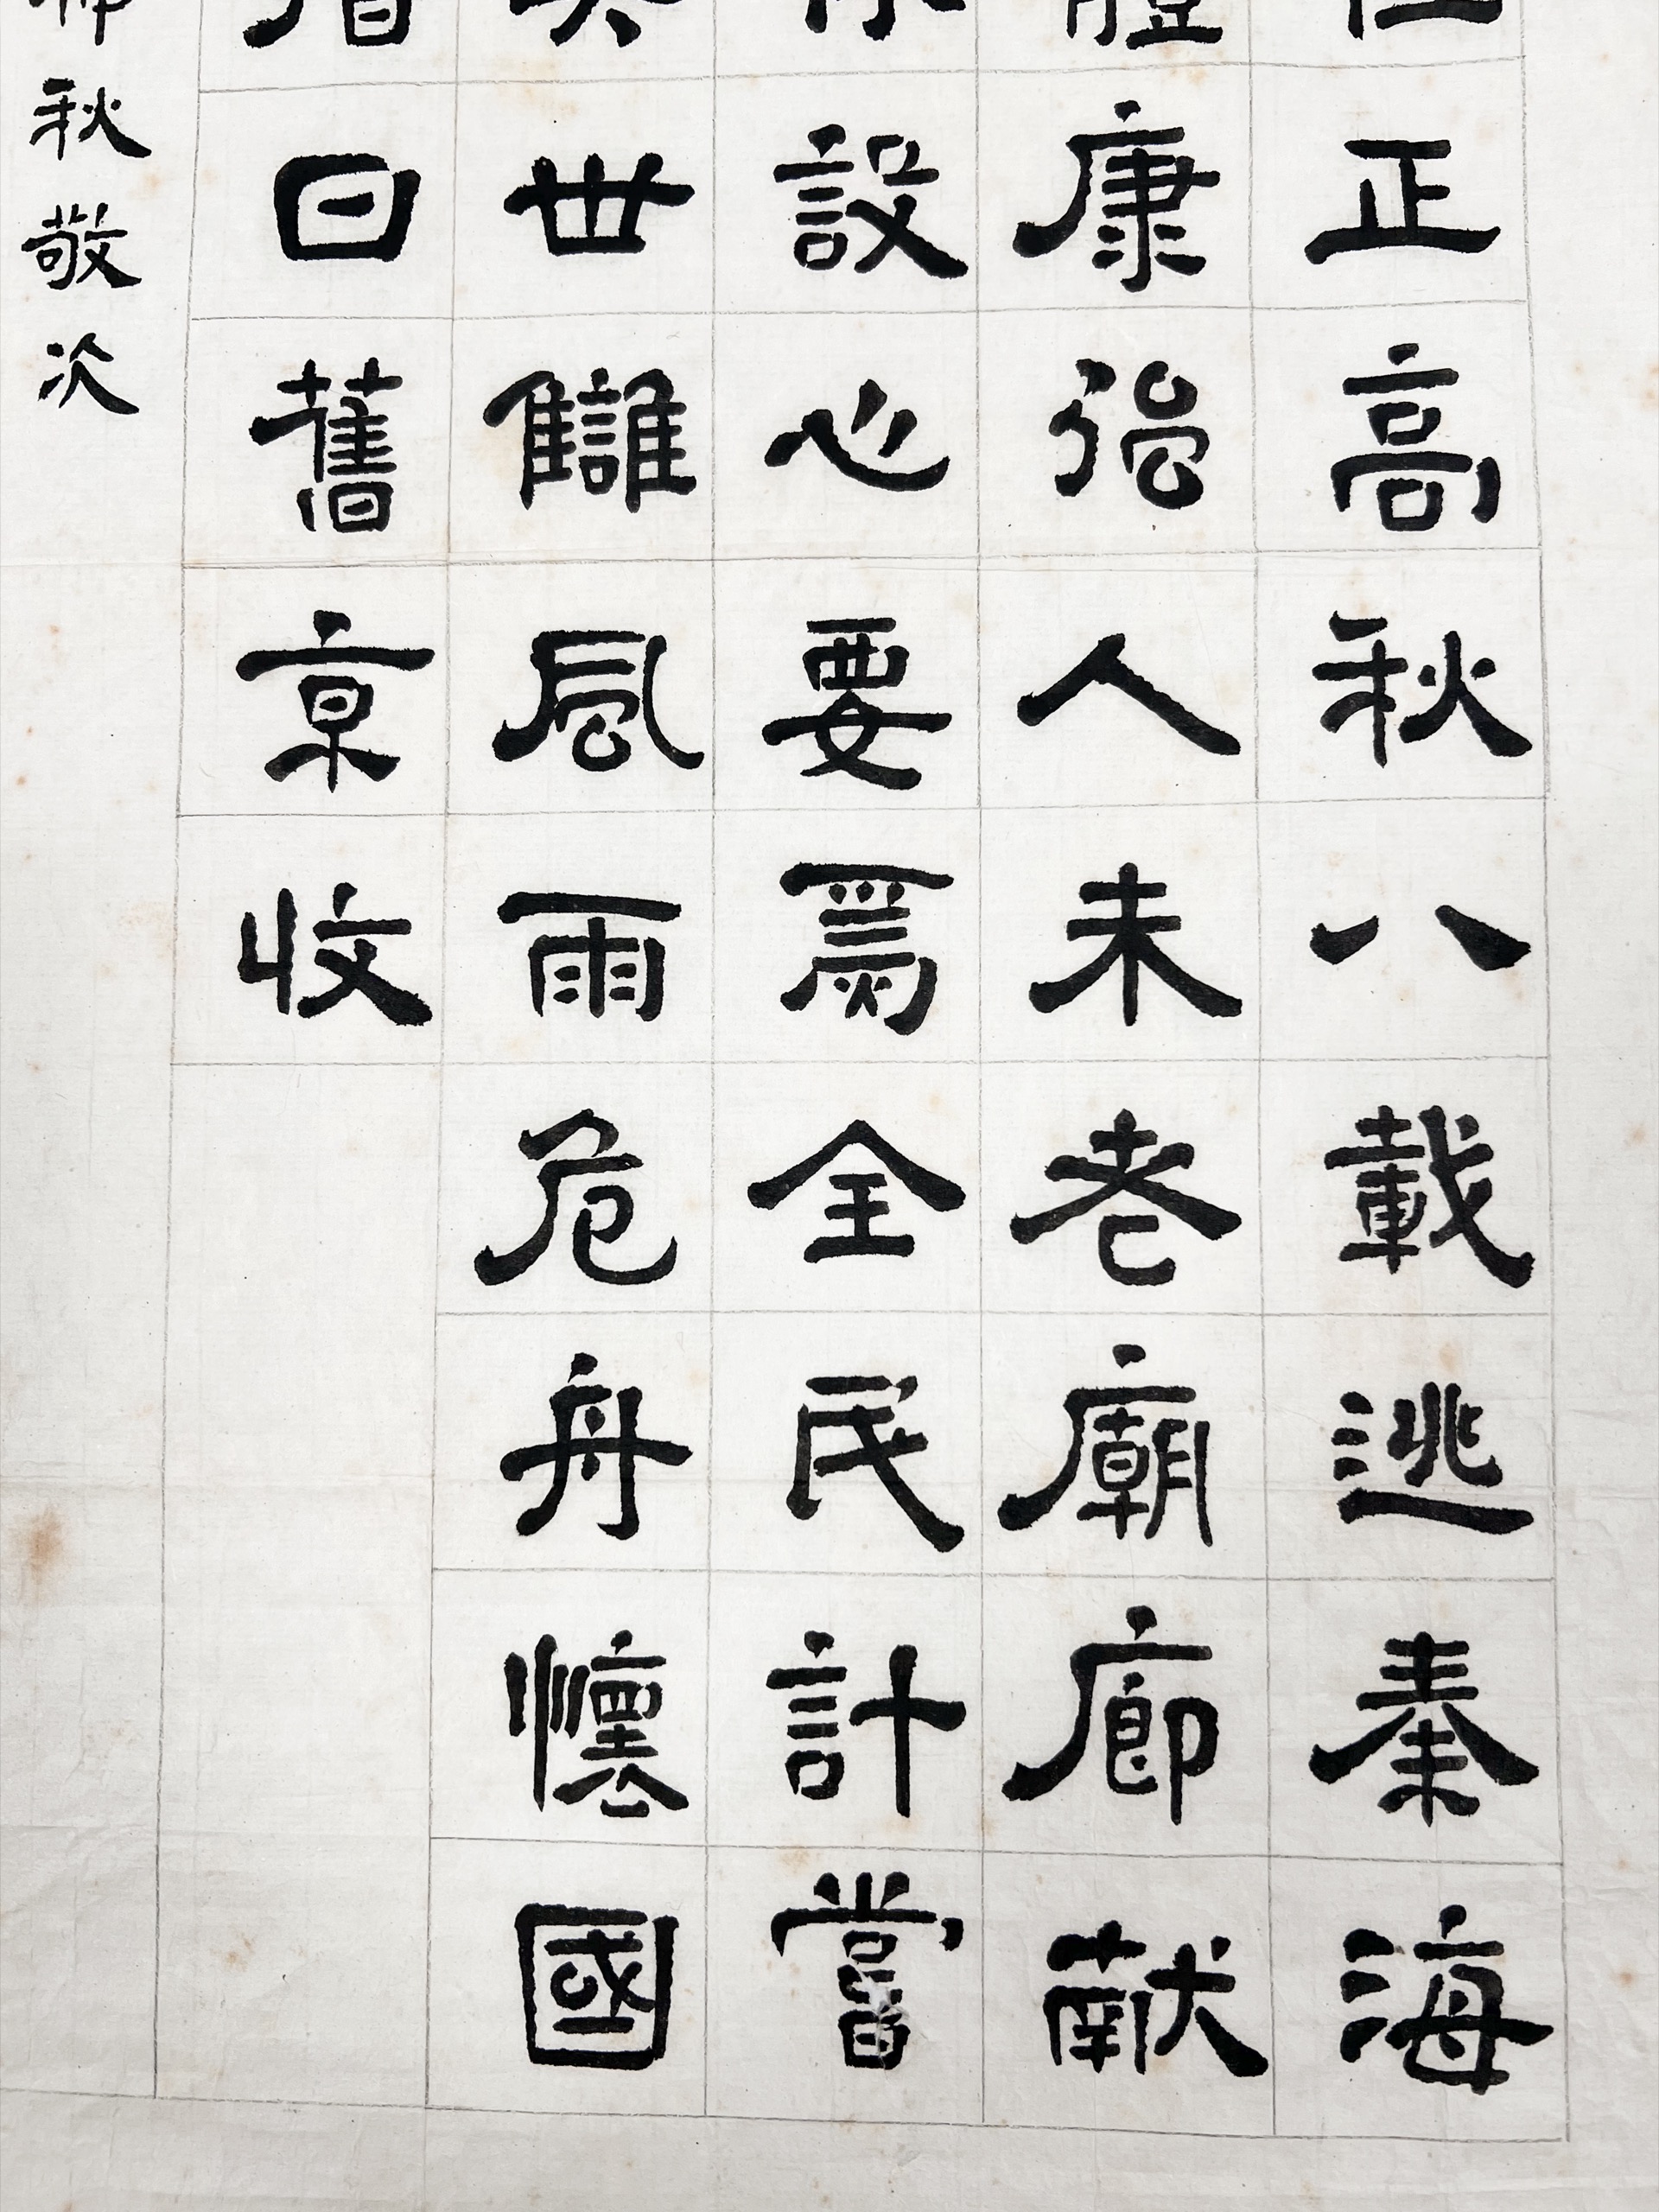 正高秋八載逃秦海
體康強人未老廟廊獻
設心要為全民計嘗
世讎風雨危舟懷國
曰舊京收
秋敬次